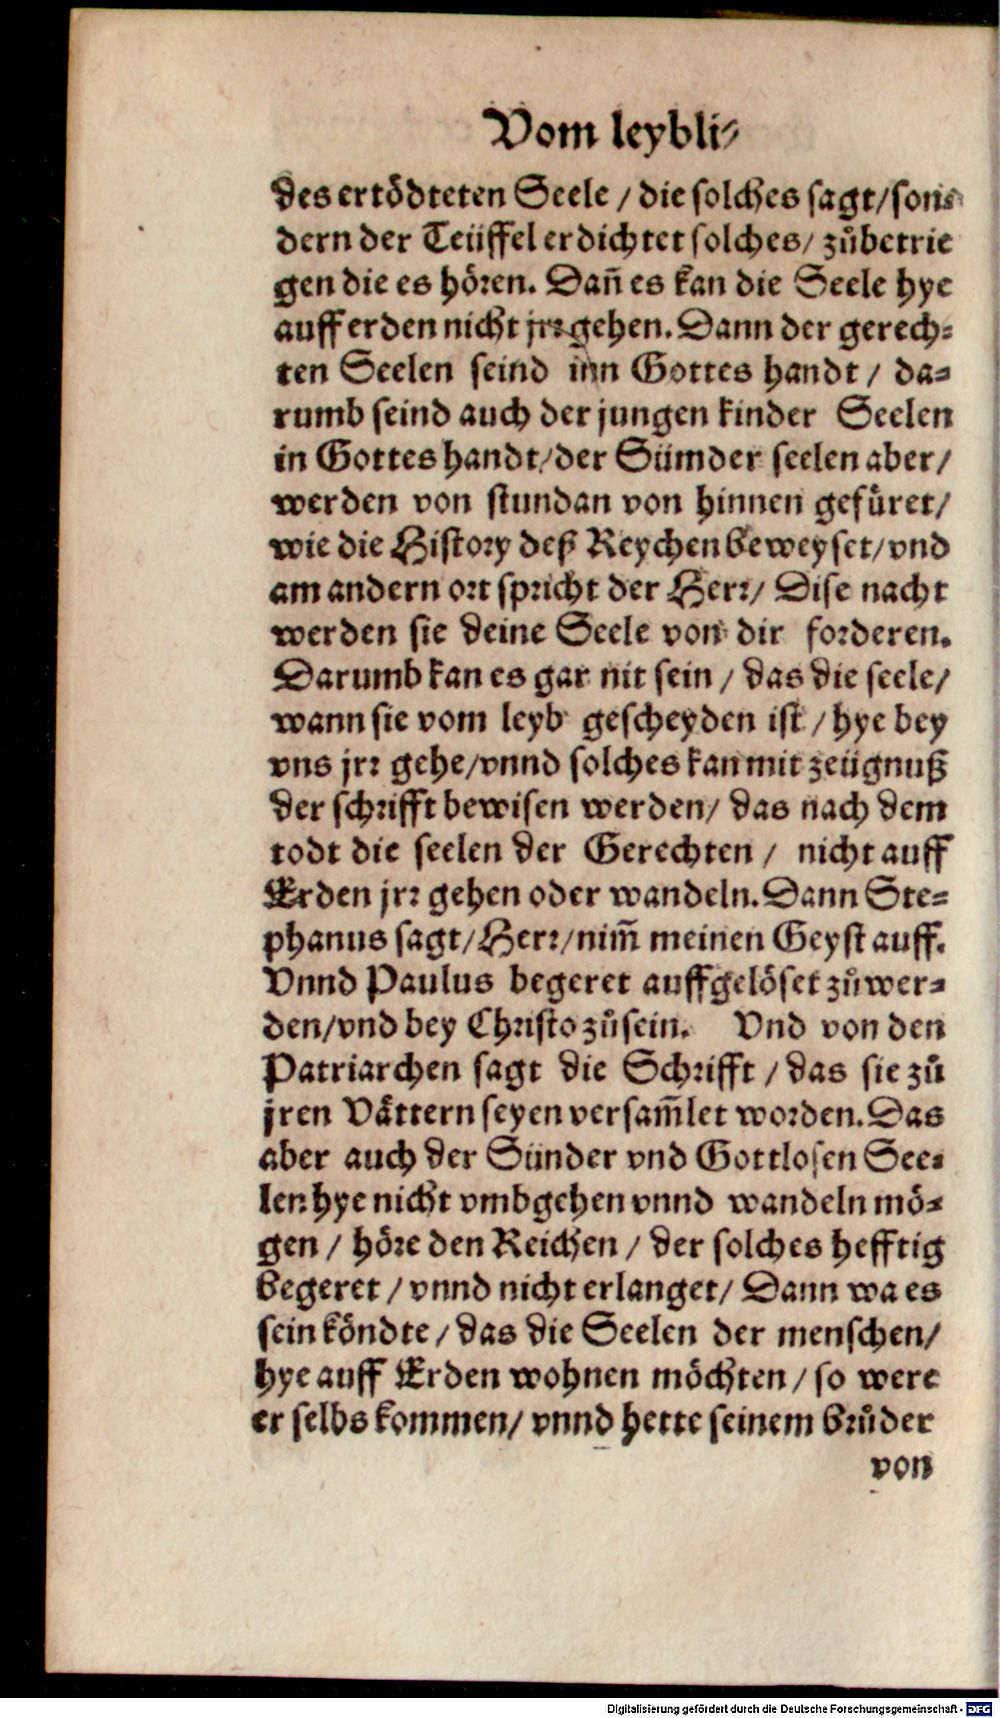 Vom leybli-
des ertödteten Seele / die solches sagt / son-
dern der Teüffel erdichtet solches / zůbetrie
gen die es hören. Dañ es kan die Seele hye
auff erden nicht jrr gehen. Dann der gerech-
ten Seelen seind inn Gottes handt / da-
rumb seind auch der jungen kinder Seelen
in Gottes handt / der Sümder seelen aber /
werden von stundan von hinnen gefüret /
wie die History deß Reychen beweyset / vnd
am andern ort spricht der Herr / Dise nacht
werden sie deine Seele von dir forderen.
Darumb kan es gar nit sein / das die seele /
wann sie vom leyb gescheyden ist / hye bey
vns jrr gehe / vnnd solches kan mit zeügnuß
der schrifft bewisen werden / das nach dem
todt die seelen der Gerechten / nicht auff
Erden jrr gehen oder wandeln. Dann Ste-
phanus sagt / Herr / nim̃ meinen Geyst auff.
Vnnd Paulus begeret auffgelöset zůwer-
den / vnd bey Christo zůsein. Vnd von den
Patriarchen sagt die Schrifft / das sie zů
jren Vättern seyen versam̃let worden. Das
aber auch der Sünder vnd Gottlosen See-
len hye nicht vmbgehen vnnd wandeln mö-
gen / höre den Reichen / der solches hefftig
begeret / vnnd nicht erlanget / Dann wa es
sein köndte / das die Seelen der menschen /
hye auff Erden wohnen möchten / so were
er selbs kommen / vnnd hette seinem brůder
von
Digitalisierung gefördert durch die Deutsche Forschungsgemeinschaft - DFG